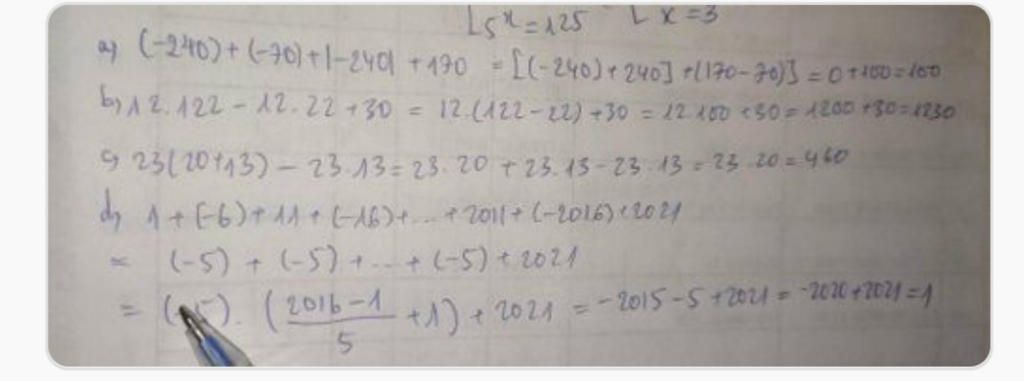 [ 5^x = 125 [ x = 3
a) (-240) + (-70) + |-240| + 170 = [(-240) + 240] + (170 - 70)] = 0 + 100 = 100
b) 12.122 - 12.22 + 30 = 12.(122 - 22) + 30 = 12.100 + 30 = 1200 + 30 = 1230
c) 23(20+13) - 23.13 = 23.20 + 23.13 - 23.13 = 23.20 = 460
d) 1 + (-6) + 11 + (-16) + ... + 2011 + (-2016) + 2021
= (-5) + (-5) + ... + (-5) + 2021
= ( 5) . ( (2016 - 1)/5 + 1) + 2021 = -2015 - 5 + 2021 = -2020 + 2021 = 1